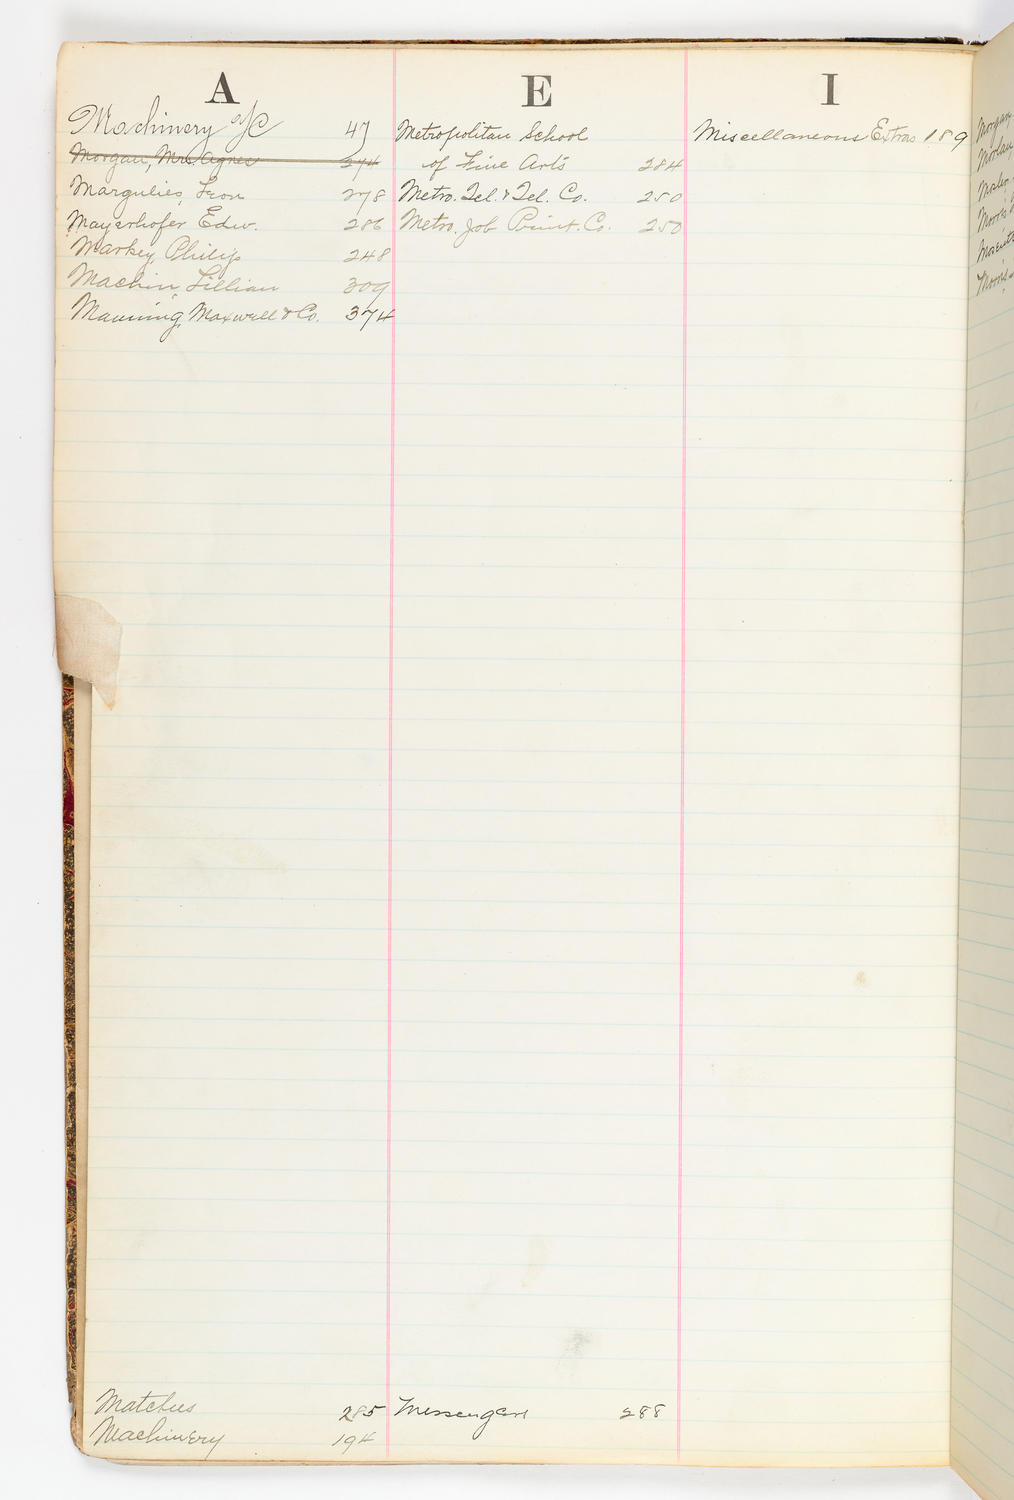 A
Machinery a/c 47
Morgan, Mrs. Agnes 274
Margulies, Leon 278
Mayerhofer Edw. 286
Markey, Philip 248
Machin, Lillian 309
Manning, Maxwell & Co. 374
Matches 285
Machinery 194
E
Metropolitan School
of Fine Arts 284
Metro. Tel. & Tel. Co. 250
Metro. Job Print. Co. 250
Messengers 288
I
Miscellaneous Extras 189
Morgan,